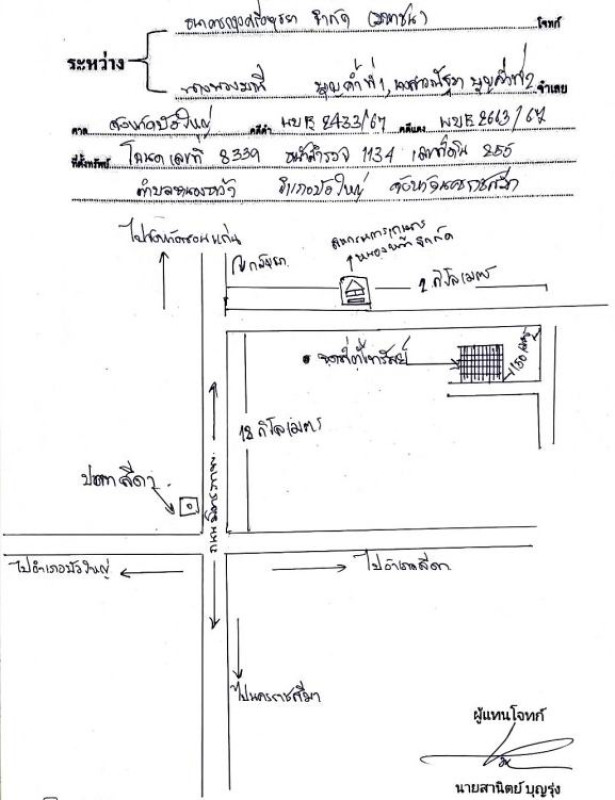 ธนาคารกรุงศรีอยุธยา จำกัด (มหาชน) โจทก์
ระหว่าง
พูนค้ำที่1, จำเลย
ศาล จังหวัดบัวใหญ่ คดีดำ ผบE 2433/67 คดีแดง ผบE 2663/67
ที่ตั้งทรัพย์ โฉนดเลขที่ 8339 หน้าสำรวจ 1134 เลขที่ดิน 255
ตำบลหนองหว้า อำเภอบัวใหญ่ จังหวัดนครราชสีมา
ไปจังหวัดขอนแก่น
สหกรณ์การเกษตร
จำกัด
2 กิโลเมตร
จุดที่ตั้งทรัพย์
150 เมตร
18 กิโลเมตร
ปตท สีดา
ถนนมิตรภาพ
ไปอำเภอบัวใหญ่
ไปอำเภอสีดา
ไปนครราชสีมา
ผู้แทนโจทก์
นายสานิตย์ บุญรุ่ง